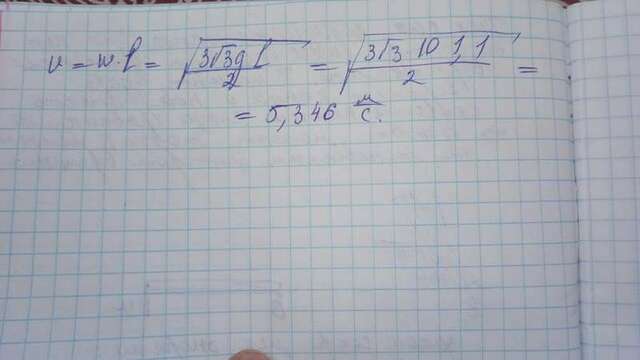 v = w·l = √(3√3gl/2) = √(3√3 10 1,1/2) =
= 5,346 м/с.